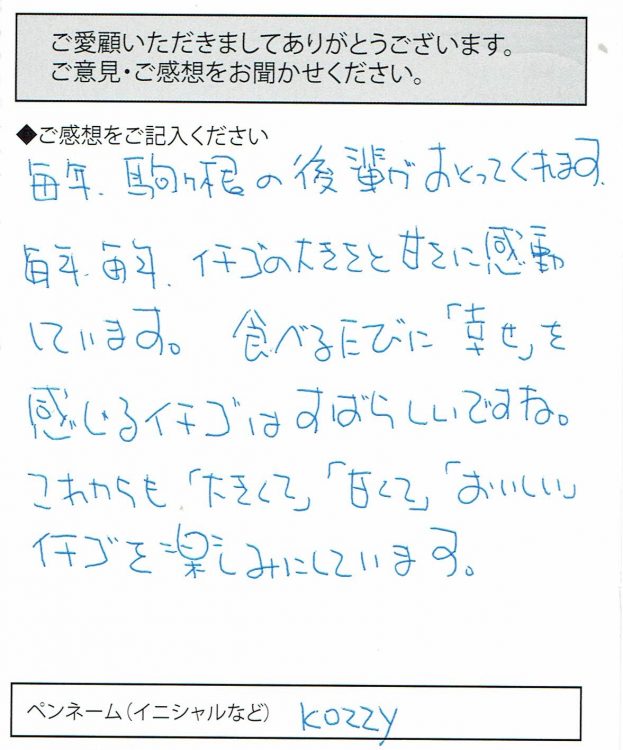 ご愛顧いただきましてありがとうございます。
ご意見・ご感想をお聞かせください。
◆ご感想をご記入ください
毎年、駒ヶ根の後輩がおとってくれます。
毎年、毎年、イチゴの大きさと甘さに感動
しています。食べるたびに「幸せ」を
感じるイチゴはすばらしいですね。
これからも「大きくて」「甘くて」「おいしい」
イチゴを楽しみにしています。
ペンネーム(イニシャルなど) kozzy